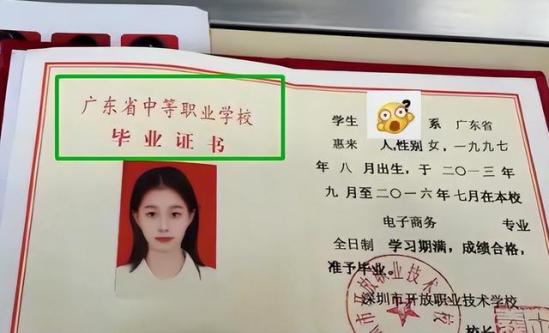 广东省中等职业学校
毕业证书
学生 系 广东省
惠来 人，性别 女，一九九七
年 八 月出生，于二〇一三年
九 月至二〇一六年 七月在本校
电子商务 专业
全日制 学习期满，成绩合格，
准予毕业。
深圳市开放职业技术学校
校长